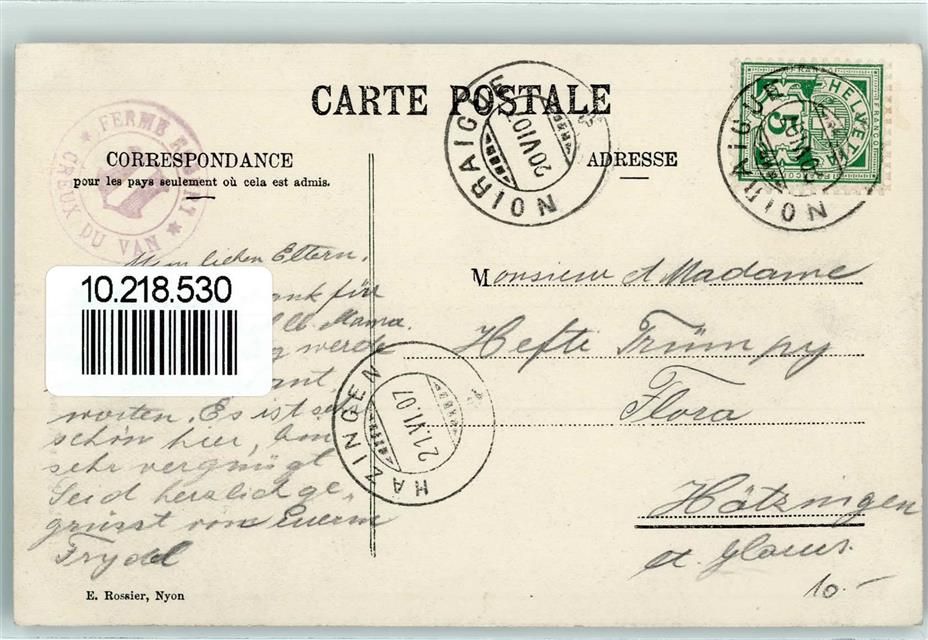 CARTE POSTALE
CORRESPONDANCE
pour les pays seulement où cela est admis.
ADRESSE
FERME
CREUX DU VAN
NOIRAIGUE
20 VI 07
NOIRAIGUE
HELVETIA
FRANCO
5
lieben Eltern,
10.218.530
für
Mama.
werde
ant
worten. Es ist seh
schön hier, bin
sehr vergnügt
Seid herzlich ge-
grüsst von Euerm
Frydel
HÄZINGEN
21.VI.07
Monsieur et Madame
Hefti Trümpy
Flora
Hätzingen
ct. Glarus.
10.-
E. Rossier, Nyon